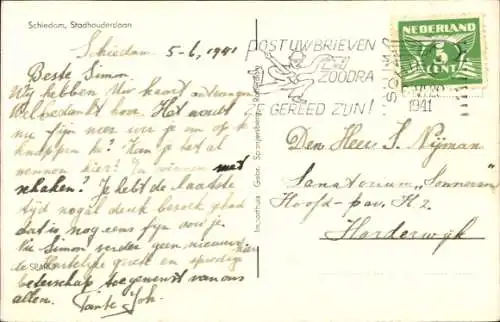 Schiedam, Stadhouderslaan
Schiedam 5-6, 1941
Beste Simon.
Wij hebben Uw kaart ontvangen
Wel bedankt hoor. Het wordt
nu fijn weer om op te
knappen hè? Kan je het al
wennen hier? En winnen met
schaken? Je hebt de laatste
tijd nogal druk bezoek gehad
dat is nog eens fijn voor je.
Nu Simon verder geen nieuws
de Hartelijke groet en spoedige
beterschap toegewenst van ons
allen. Tante Joh.
Importhuis Gebr. Spanjersberg, Rotterdam
POST UW BRIEVEN
ZOODRA
ZE GEREED ZIJN!
SCHIEDAM
1941
NEDERLAND
5
CENT
Den Heer S. Nijman
Sanatorium "Sonnevanck"
Hoofd-pav. H 2.
Harderwijk